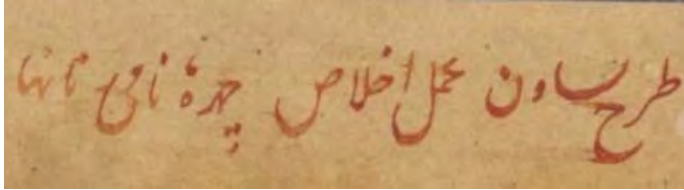 طرح بساون عمل اخلاص چهرهٔ نامی نانها